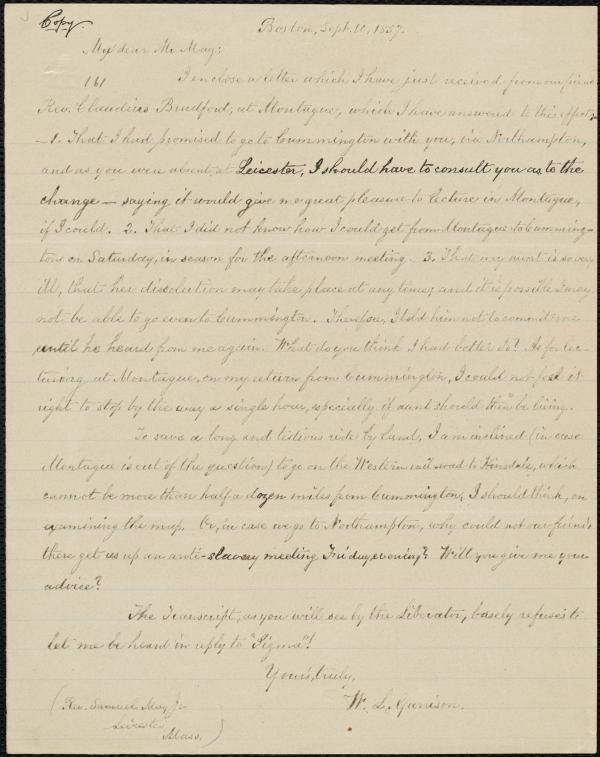 Copy.
Boston, Sept. 10, 1857.
My dear Mr. May:
161
I enclose a letter which I have just received from our friend
Rev. Claudius Bradford, at Montague, which I have answered to this effect:
— 1. That I had promised to go to Cummington with you, via Northampton,
and as you were absent at Leicester, I should have to consult you as to the
change — saying it would give me great pleasure to lecture in Montague,
if I could. 2. That I did not know how I could get from Montague to Cumming-
ton on Saturday, in season for the afternoon meeting. 3. That my aunt is so very
ill, that her dissolution may take place at any time; and it is possible I may
not be able to go even to Cummington. Therefore, I told him not to commit me
until he heard from me again. What do you think I had better do? As for lec-
turing at Montague, on my return from Cummington, I could not feel it
right to stop by the way a single hour, especially if aunt should then be living.
To save a long and tedious ride by land, I am inclined (in case
Montague is out of the question) to go on the Western rail road to Hinsdale, which
cannot be more than half a dozen miles from Cummington, I should think, on
examining the map. Or, in case we go to Northampton, why could not our friends
there get us up an anti-slavery meeting Friday evening? Will you give me your
advice?
The Transcript, as you will see by the Liberator, basely refuses to
let me be heard in reply to "Sigma"!
Yours, truly,
W. L. Garrison.
(Rev. Samuel May, Jr.
Leicester,
Mass.)